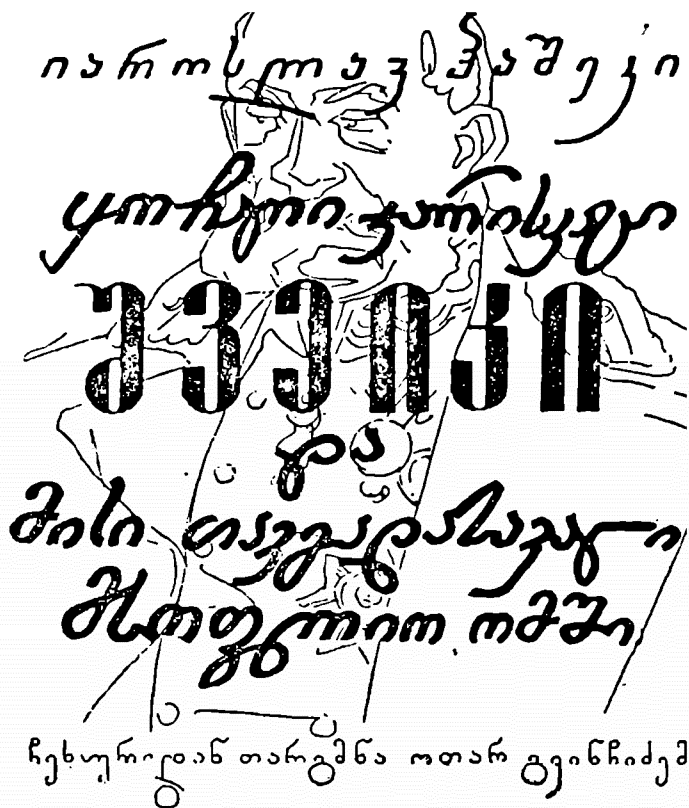 იაროსლავ ჰაშეკი
ყოჩაღი ჯარისკაცი
შვეიკი
და
მისი თავგადასავალი
მსოფლიო ომში
ჩეხურიდან თარგმნა ოთარ გვინჩიძემ